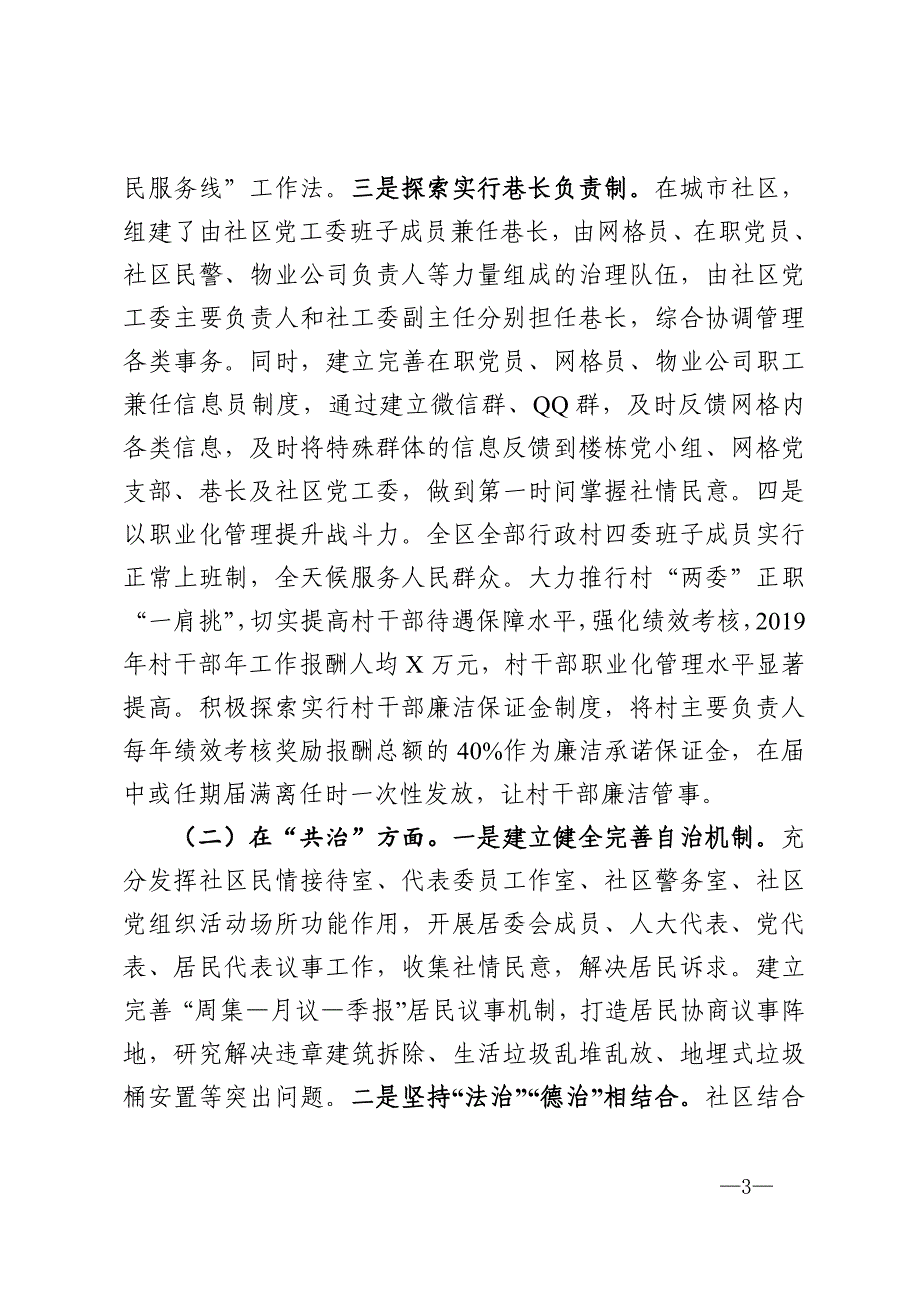 民服务线”工作法。三是探索实行巷长负责制。在城市社区，
组建了由社区党工委班子成员兼任巷长，由网格员、在职党员、
社区民警、物业公司负责人等力量组成的治理队伍，由社区党
工委主要负责人和社工委副主任分别担任巷长，综合协调管理
各类事务。同时，建立完善在职党员、网格员、物业公司职工
兼任信息员制度，通过建立微信群、QQ 群，及时反馈网格内
各类信息，及时将特殊群体的信息反馈到楼栋党小组、网格党
支部、巷长及社区党工委，做到第一时间掌握社情民意。四是
以职业化管理提升战斗力。全区全部行政村四委班子成员实行
正常上班制，全天候服务人民群众。大力推行村“两委”正职
“一肩挑”，切实提高村干部待遇保障水平，强化绩效考核，2019
年村干部年工作报酬人均 X 万元，村干部职业化管理水平显著
提高。积极探索实行村干部廉洁保证金制度，将村主要负责人
每年绩效考核奖励报酬总额的 40%作为廉洁承诺保证金，在届
中或任期届满离任时一次性发放，让村干部廉洁管事。
（二）在“共治”方面。一是建立健全完善自治机制。充
分发挥社区民情接待室、代表委员工作室、社区警务室、社区
党组织活动场所功能作用，开展居委会成员、人大代表、党代
表、居民代表议事工作，收集社情民意，解决居民诉求。建立
完善“周集—月议—季报”居民议事机制，打造居民协商议事阵
地，研究解决违章建筑拆除、生活垃圾乱堆乱放、地埋式垃圾
桶安置等突出问题。二是坚持“法治”“德治”相结合。社区结合
—3—